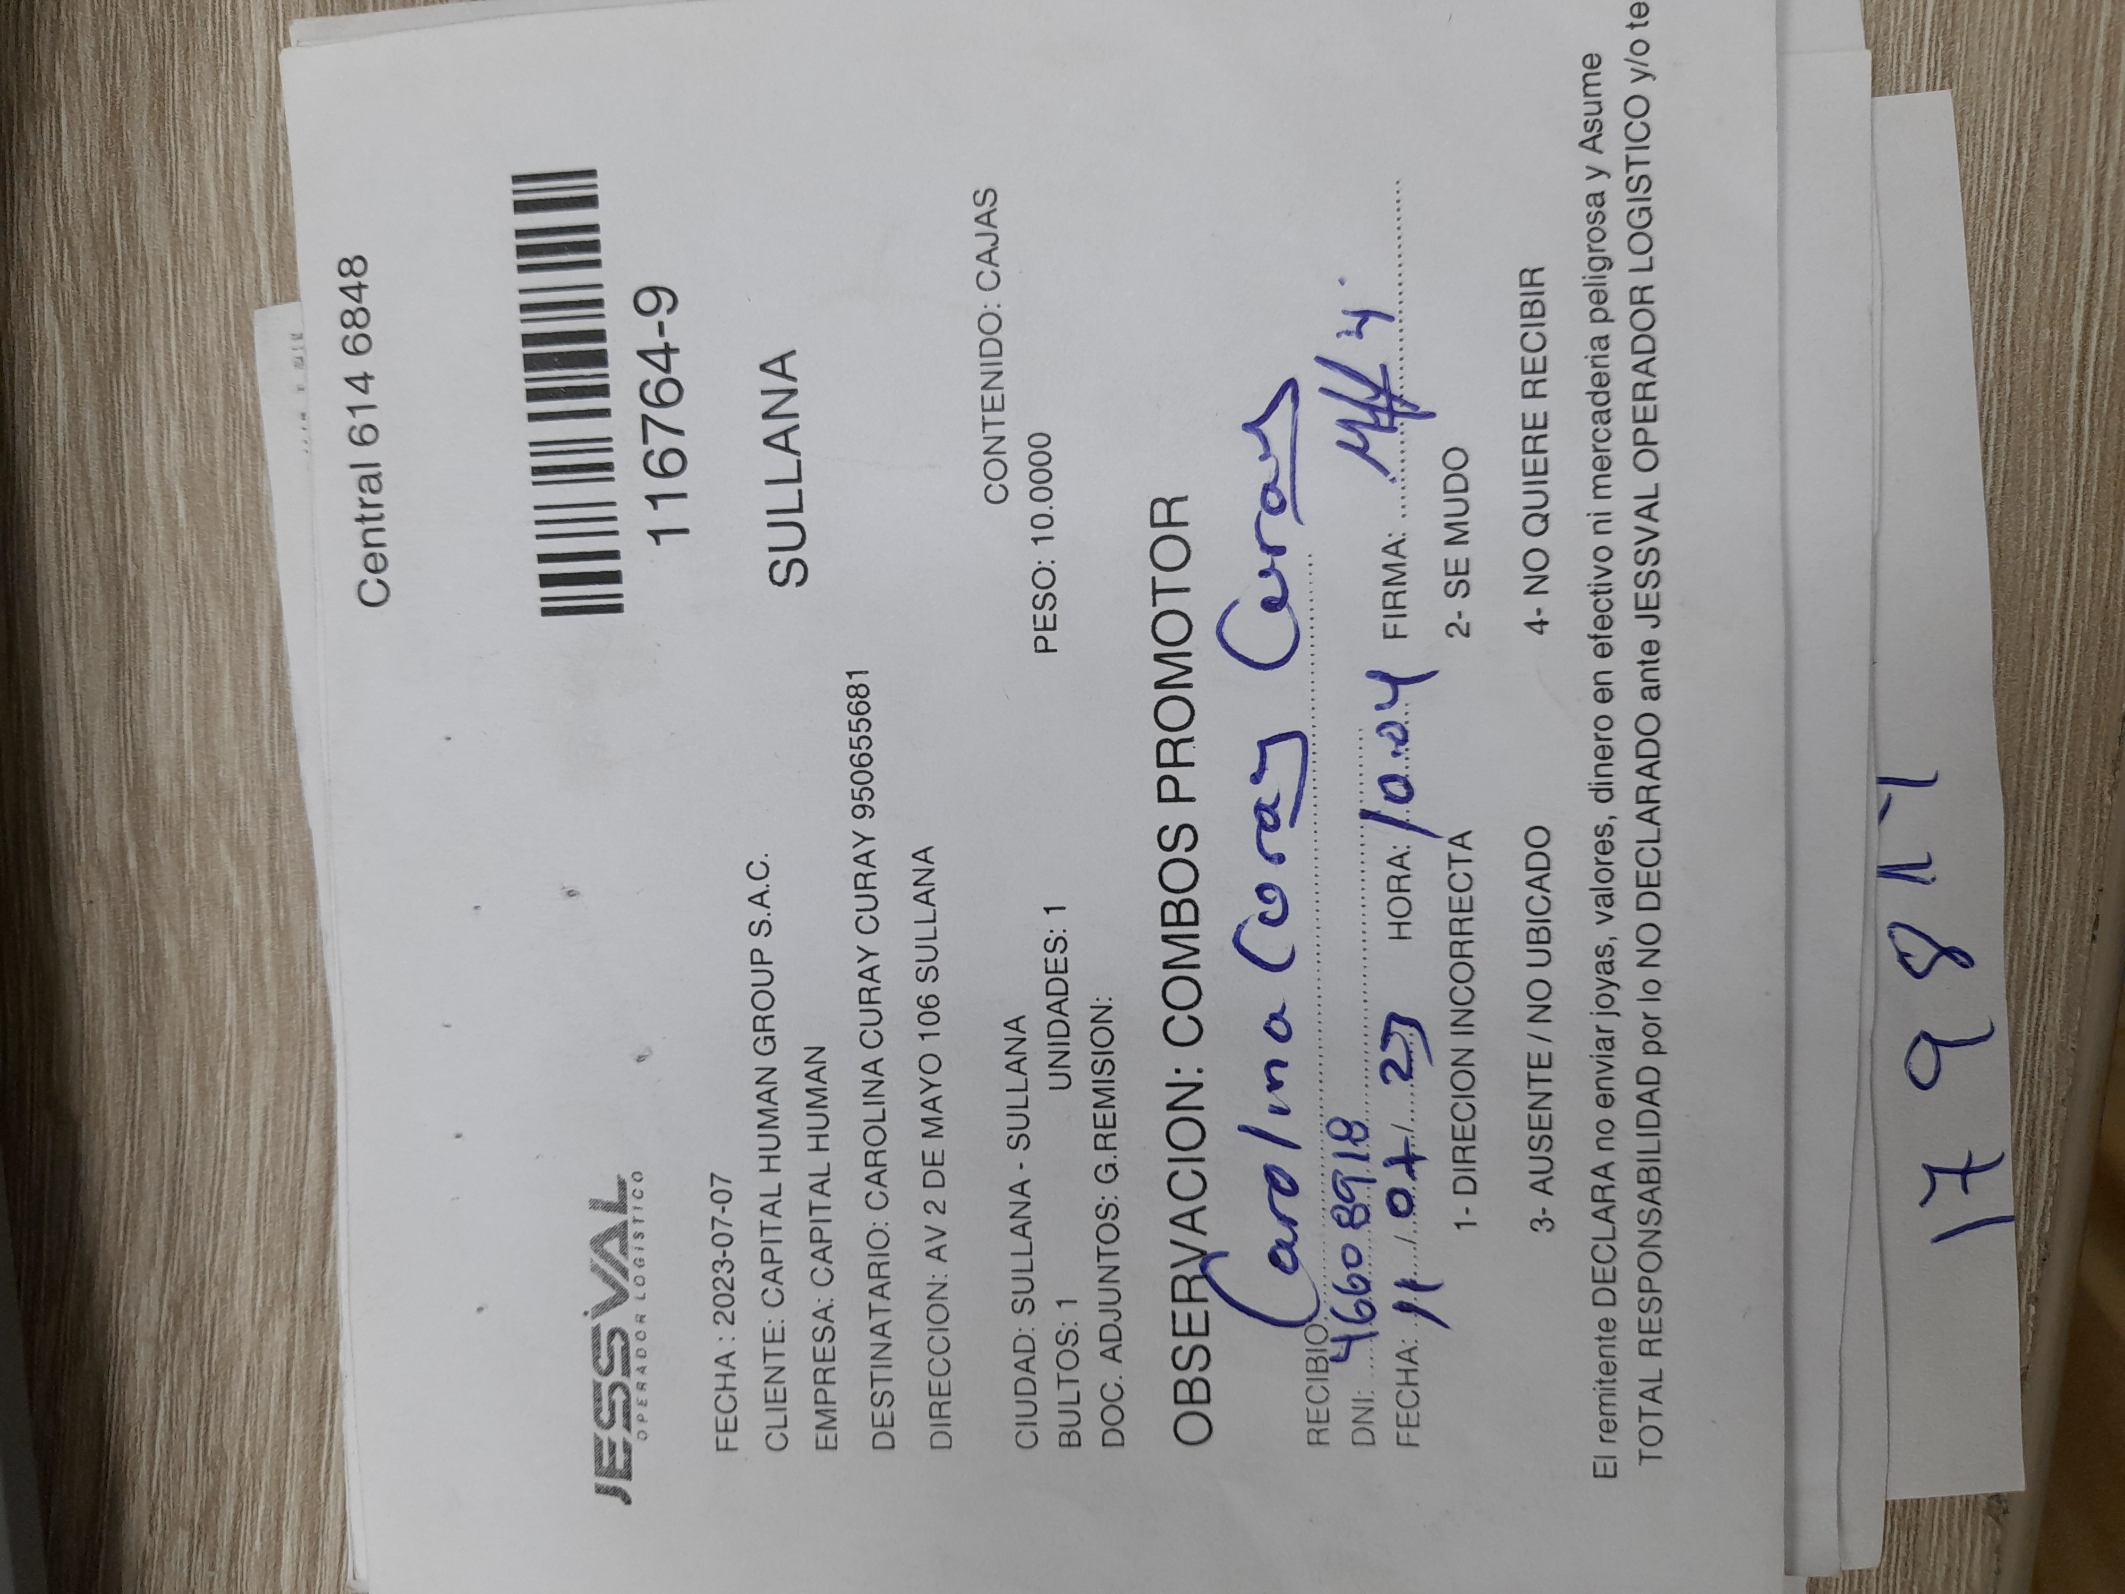 Central 614 6848
JESSVAL
OPERADOR LOGISTICO
116764-9
FECHA : 2023-07-07
CLIENTE: CAPITAL HUMAN GROUP S.A.C.
SULLANA
EMPRESA: CAPITAL HUMAN
DESTINATARIO: CAROLINA CURAY CURAY 950655681
DIRECCION: AV 2 DE MAYO 106 SULLANA
CONTENIDO: CAJAS
CIUDAD: SULLANA - SULLANA
BULTOS: 1 UNIDADES: 1 PESO: 10.0000
DOC. ADJUNTOS: G.REMISION:
OBSERVACION: COMBOS PROMOTOR
RECIBIO: Carolina Curay Curay
DNI: 46608918
FECHA: 11/07/23 HORA: 10:04 FIRMA:
1- DIRECION INCORRECTA 2- SE MUDO
3- AUSENTE / NO UBICADO 4- NO QUIERE RECIBIR
El remitente DECLARA no enviar joyas, valores, dinero en efectivo ni mercaderia peligrosa y Asume
TOTAL RESPONSABILIDAD por lo NO DECLARADO ante JESSVAL OPERADOR LOGISTICO y/o te
17 98